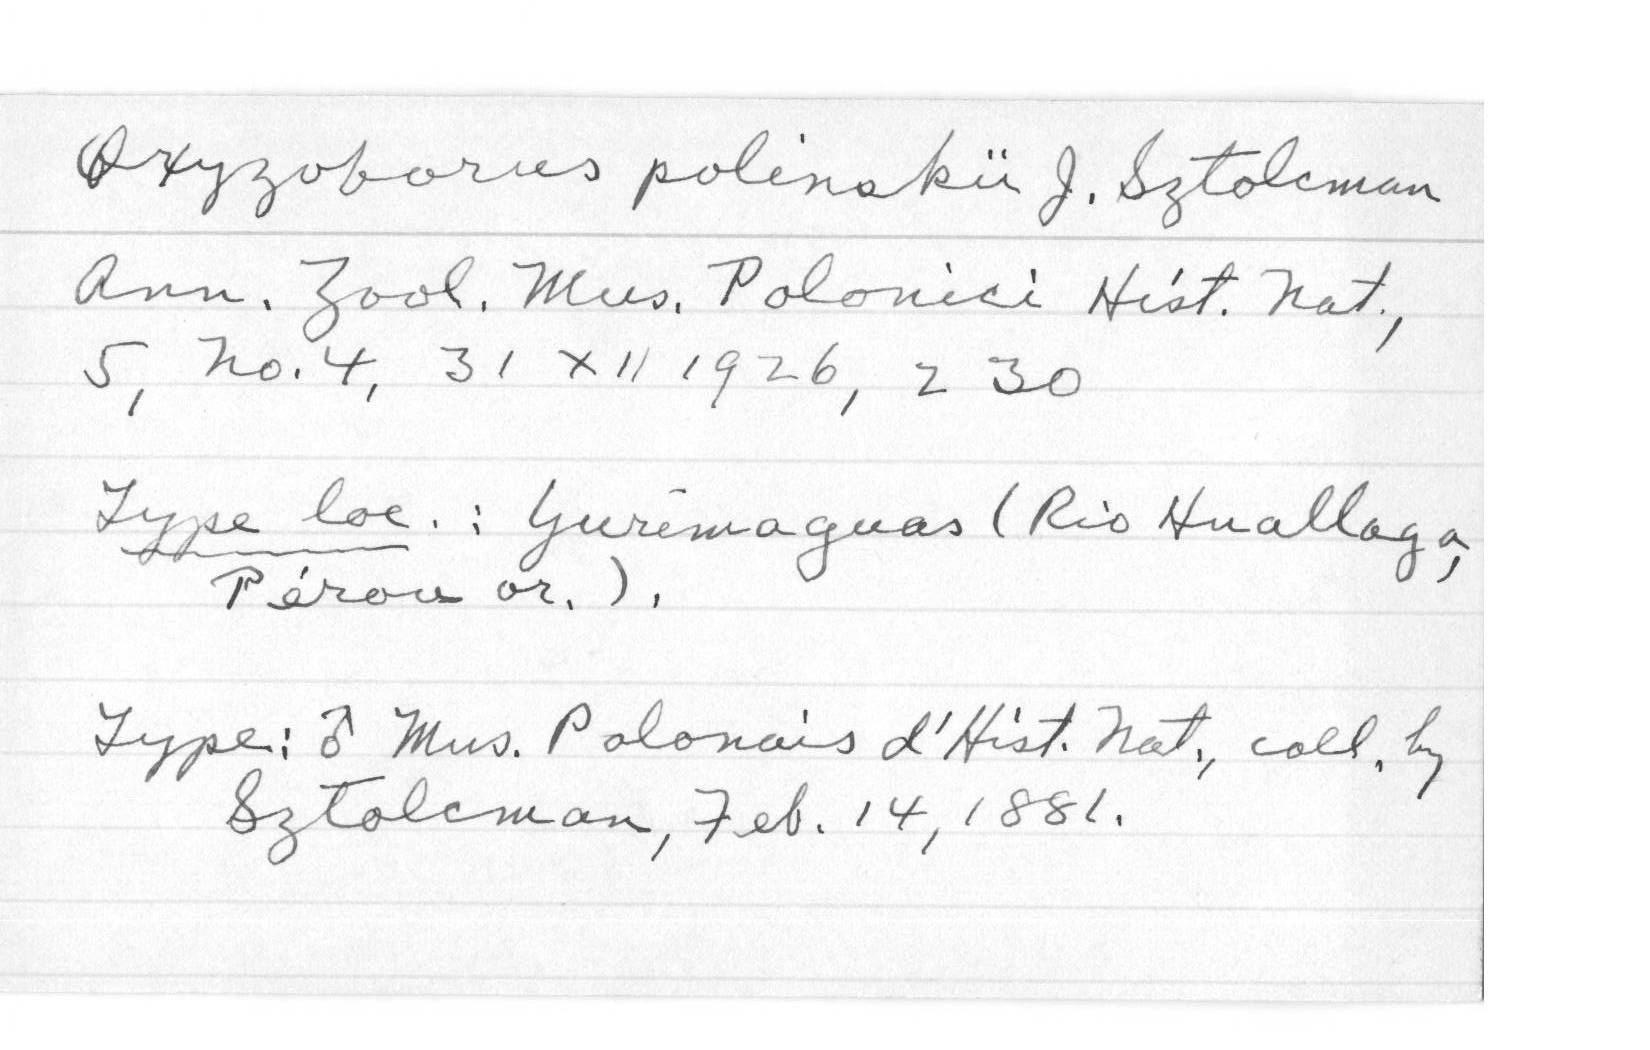 Oryzoborus polinskii J. Sztolcman
Ann. Zool. Mus. Polonici Hist. Nat.,
5, No. 4, 31 XII 1926, 230
Type loc. : Yurimaguas (Rio Huallaga,
Pérou or.).
Type: ♂ Mus. Polonais d'Hist. Nat., coll. by
Sztolcman, Feb. 14, 1881.